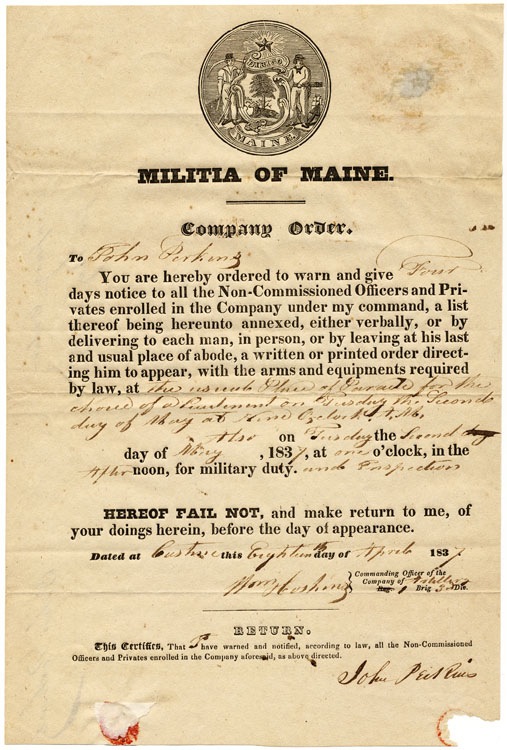 DIRIGO
MAINE
MILITIA OF MAINE.
Company Order.
To John Perkins
You are hereby ordered to warn and give Four
days notice to all the Non-Commissioned Officers and Pri-
vates enrolled in the Company under my command, a list
thereof being hereunto annexed, either verbally, or by
delivering to each man, in person, or by leaving at his last
and usual place of abode, a written or printed order direct-
ing him to appear, with the arms and equipments required
by law, at the usual Place of Parade for the
choice of a Lieutenant on Tuesday the Second
day of May at Nine O,clock A.M.
Also on Tuesday the Second day
day of May , 1837, at one o'clock, in the
After noon, for military duty. and Inspection
HEREOF FAIL NOT, and make return to me, of
your doings herein, before the day of appearance.
Dated at Castine this Eighteenth day of April 1837
Commanding Officer of the
Wm Hosking Company of Artillery
Reg. 1 Brig 3 Div.
RETURN.
This Certifies, That I have warned and notified, according to law, all the Non-Commissioned
Officers and Privates enrolled in the Company aforesaid, as above directed.
John Perkins